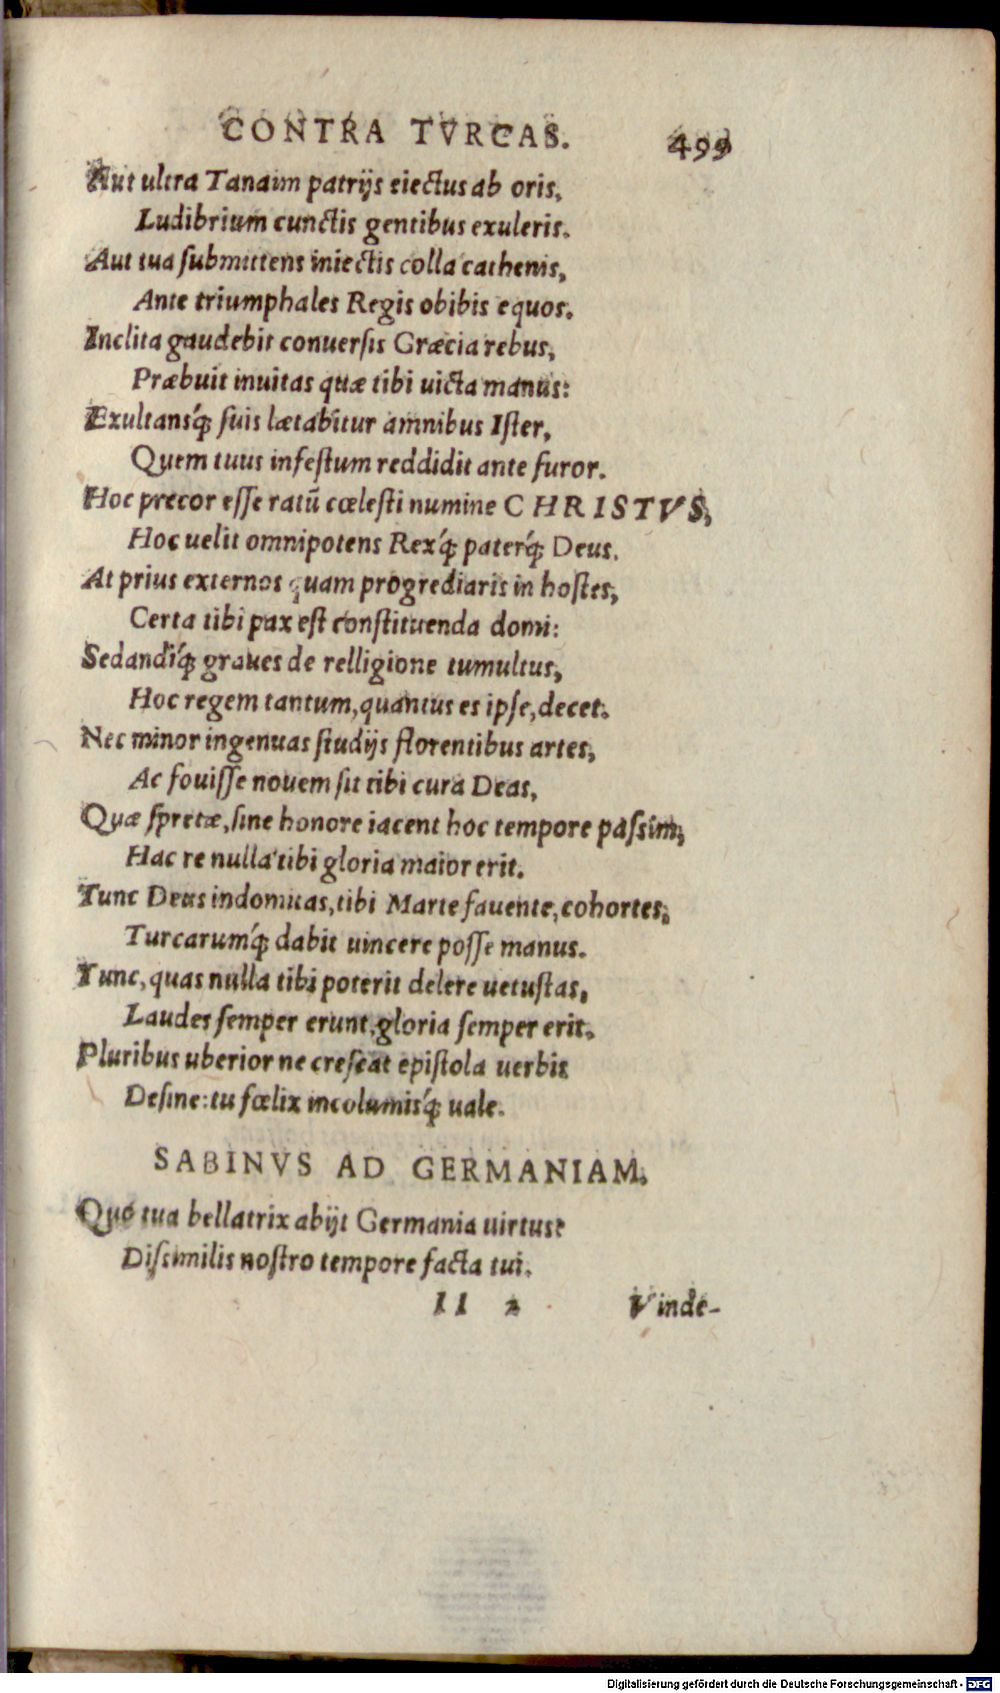 CONTRA TVRCAS. 499
Aut ultra Tanaim patrijs eiectus ab oris,
Ludibrium cunctis gentibus exul eris.
Aut tua ſubmittens iniectis colla cathenis,
Ante triumphales Regis obibis equos.
Inclita gaudebit conuerſis Græcia rebus,
Præbuit inuitas quæ tibi uicta manus:
Exultansq́; ſuis lætabitur amnibus Iſter,
Quem tuus infeſtum reddidit ante furor.
Hoc precor eſſe ratū cœleſti numine CHRISTVS,
Hoc uelit omnipotens Rexq́; paterq́; Deus.
At prius externos quam progrediaris in hoſtes,
Certa tibi pax eſt conſtituenda domi:
Sedandiq́; graues de relligione tumultus,
Hoc regem tantum, quantus es ipſe, decet.
Nec minor ingenuas ſtudijs florentibus artes,
Ac fouiſſe nouem ſit tibi cura Deas,
Quæ ſpretæ, ſine honore iacent hoc tempore paſsim,
Hac re nulla tibi gloria maior erit.
Tunc Deus indomitas, tibi Marte fauente, cohortes,
Turcarumq́; dabit uincere poſſe manus.
Tunc, quas nulla tibi poterit delere uetuſtas,
Laudes ſemper erunt, gloria ſemper erit.
Pluribus uberior ne creſcat epiſtola uerbis
Deſine: tu fœlix incolumisq́; uale.
SABINVS AD GERMANIAM.
Quo tua bellatrix abijt Germania uirtus?
Diſsimilis noſtro tempore facta tui.
II 2 Vinde-
Digitalisierung gefördert durch die Deutsche Forschungsgemeinschaft - DFG